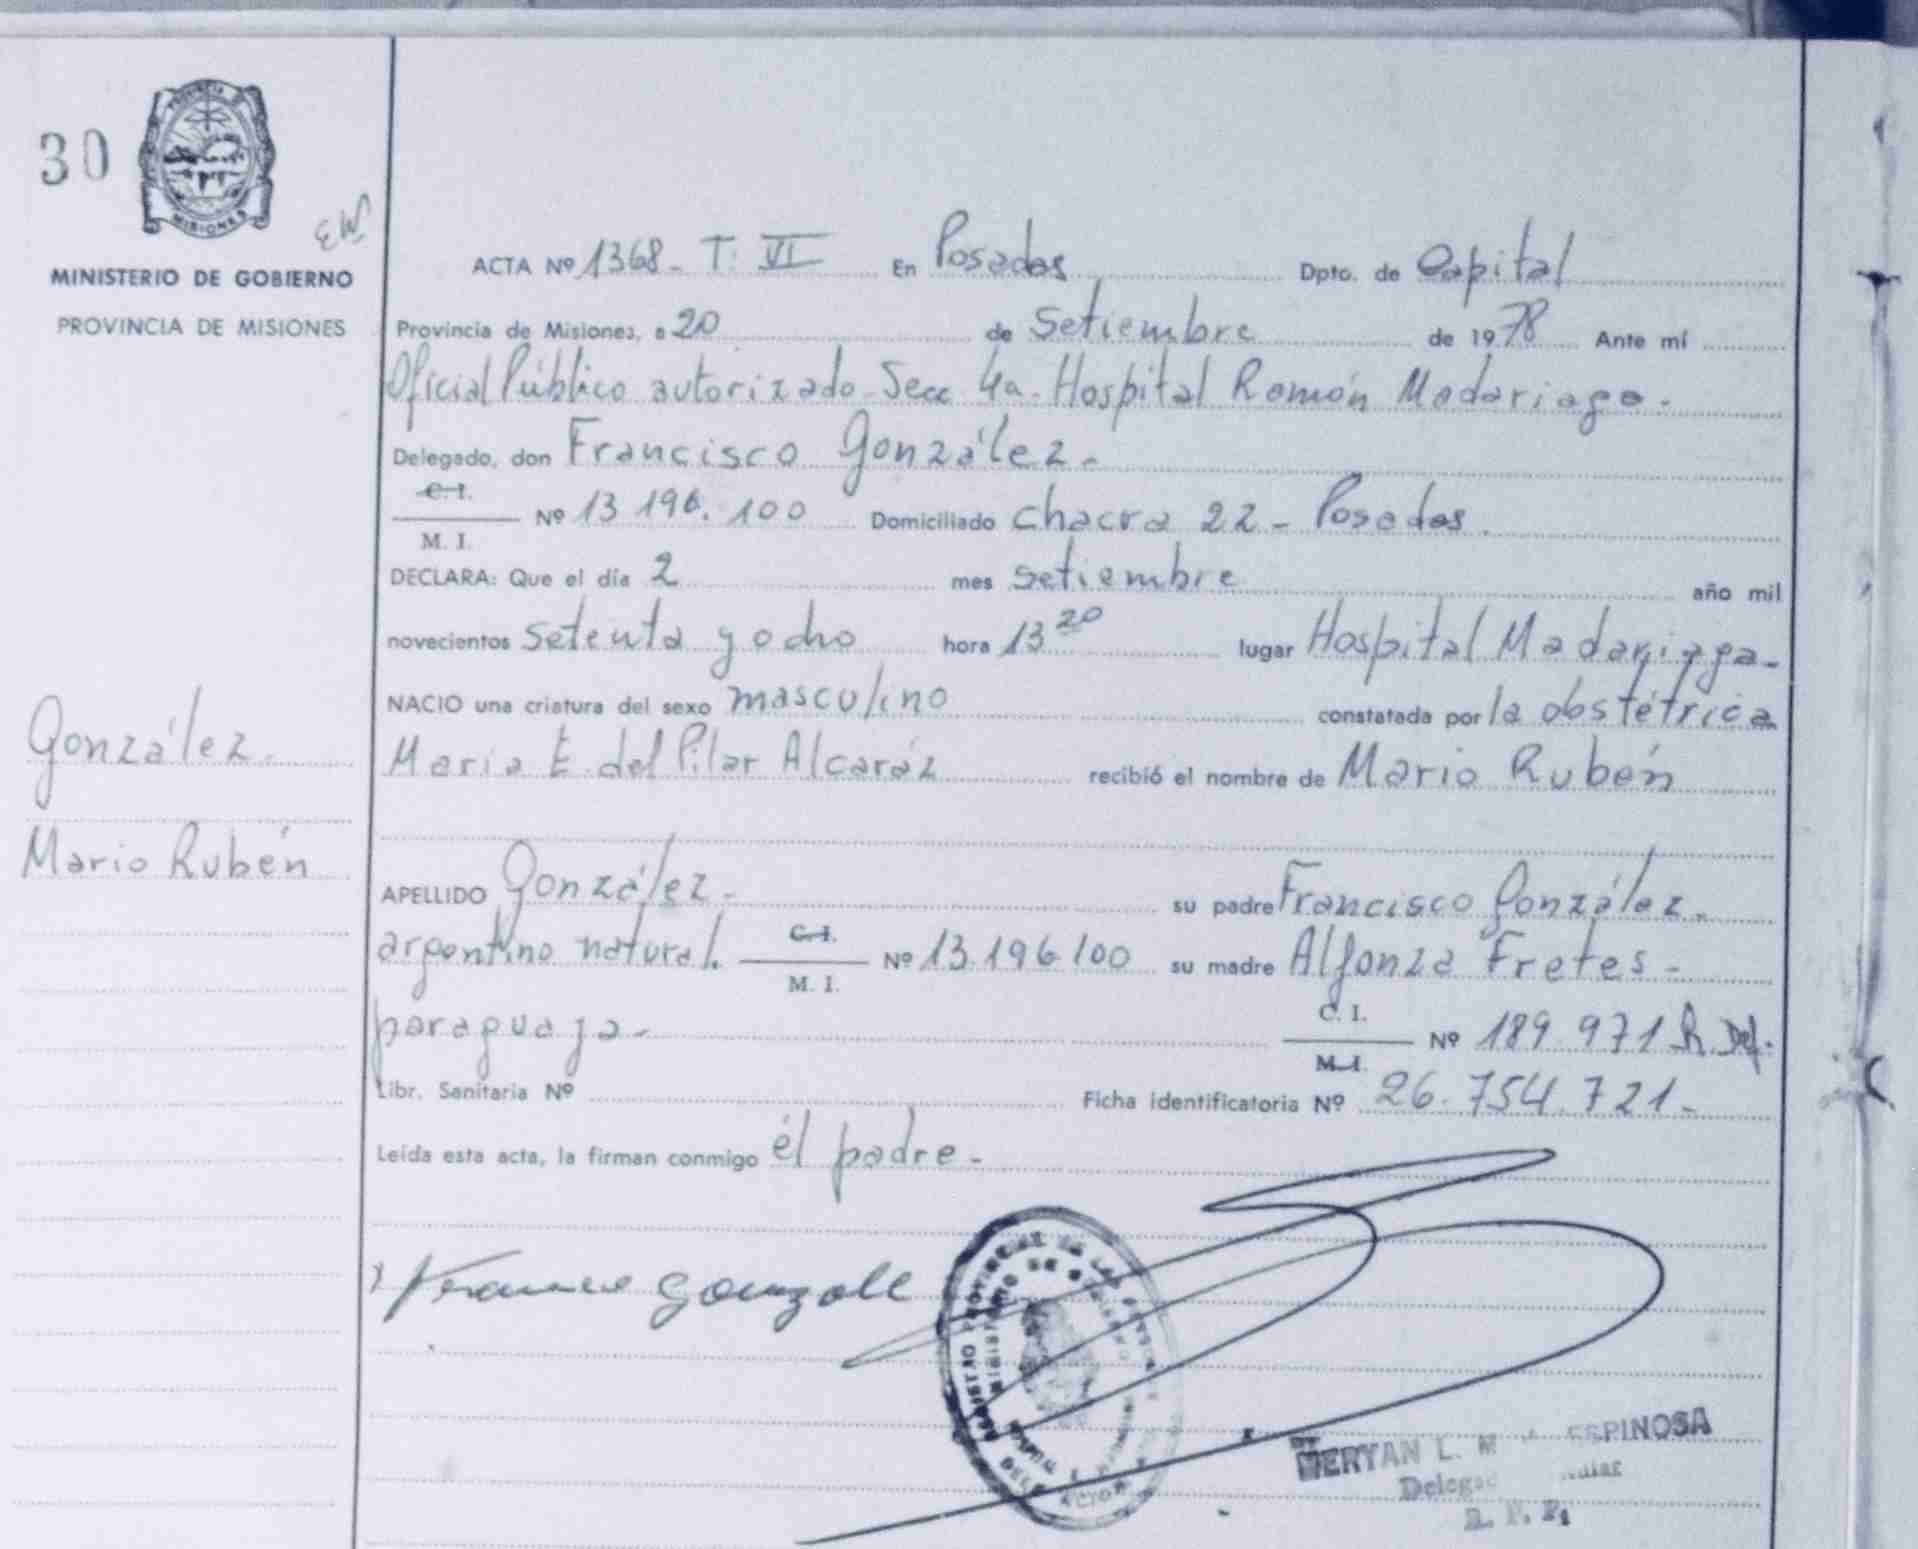 30
PROVINCIA DE
MISIONES
MINISTERIO DE GOBIERNO
PROVINCIA DE MISIONES
ACTA Nº 1368 - T. VI En Posadas Dpto. de Capital
Provincia de Misiones, a 20 de Setiembre de 1978 Ante mí
Oficial Público autorizado Secc 4a. Hospital Ramón Madariaga.
Delegado, don Francisco González.
C. I.
Nº 13 196. 100 Domiciliado chacra 22 - Posadas.
M. I.
DECLARA: Que el día 2 mes setiembre año mil
novecientos setenta y ocho hora 13 20 lugar Hospital Madariaga.
NACIO una criatura del sexo masculino constatada por la obstétrica
María E. del Pilar Alcaráz recibió el nombre de Mario Rubén
González.
Mario Rubén
APELLIDO González. su padre Francisco González.
argentino natural. C. I. Nº 13.196.100 su madre Alfonza Fretes.
M. I.
paraguaya. C. I. Nº 189.971 R. Def.
M. I.
Libr. Sanitaria Nº Ficha identificatoria Nº 26.754.721.
Leída esta acta, la firman conmigo él padre.
ESPINOSA